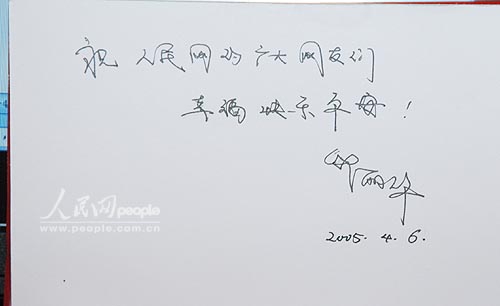 祝人民网的广大网友们
幸福快乐平安!
邰丽华
2005.4.6.
人民网people
www.people.com.cn